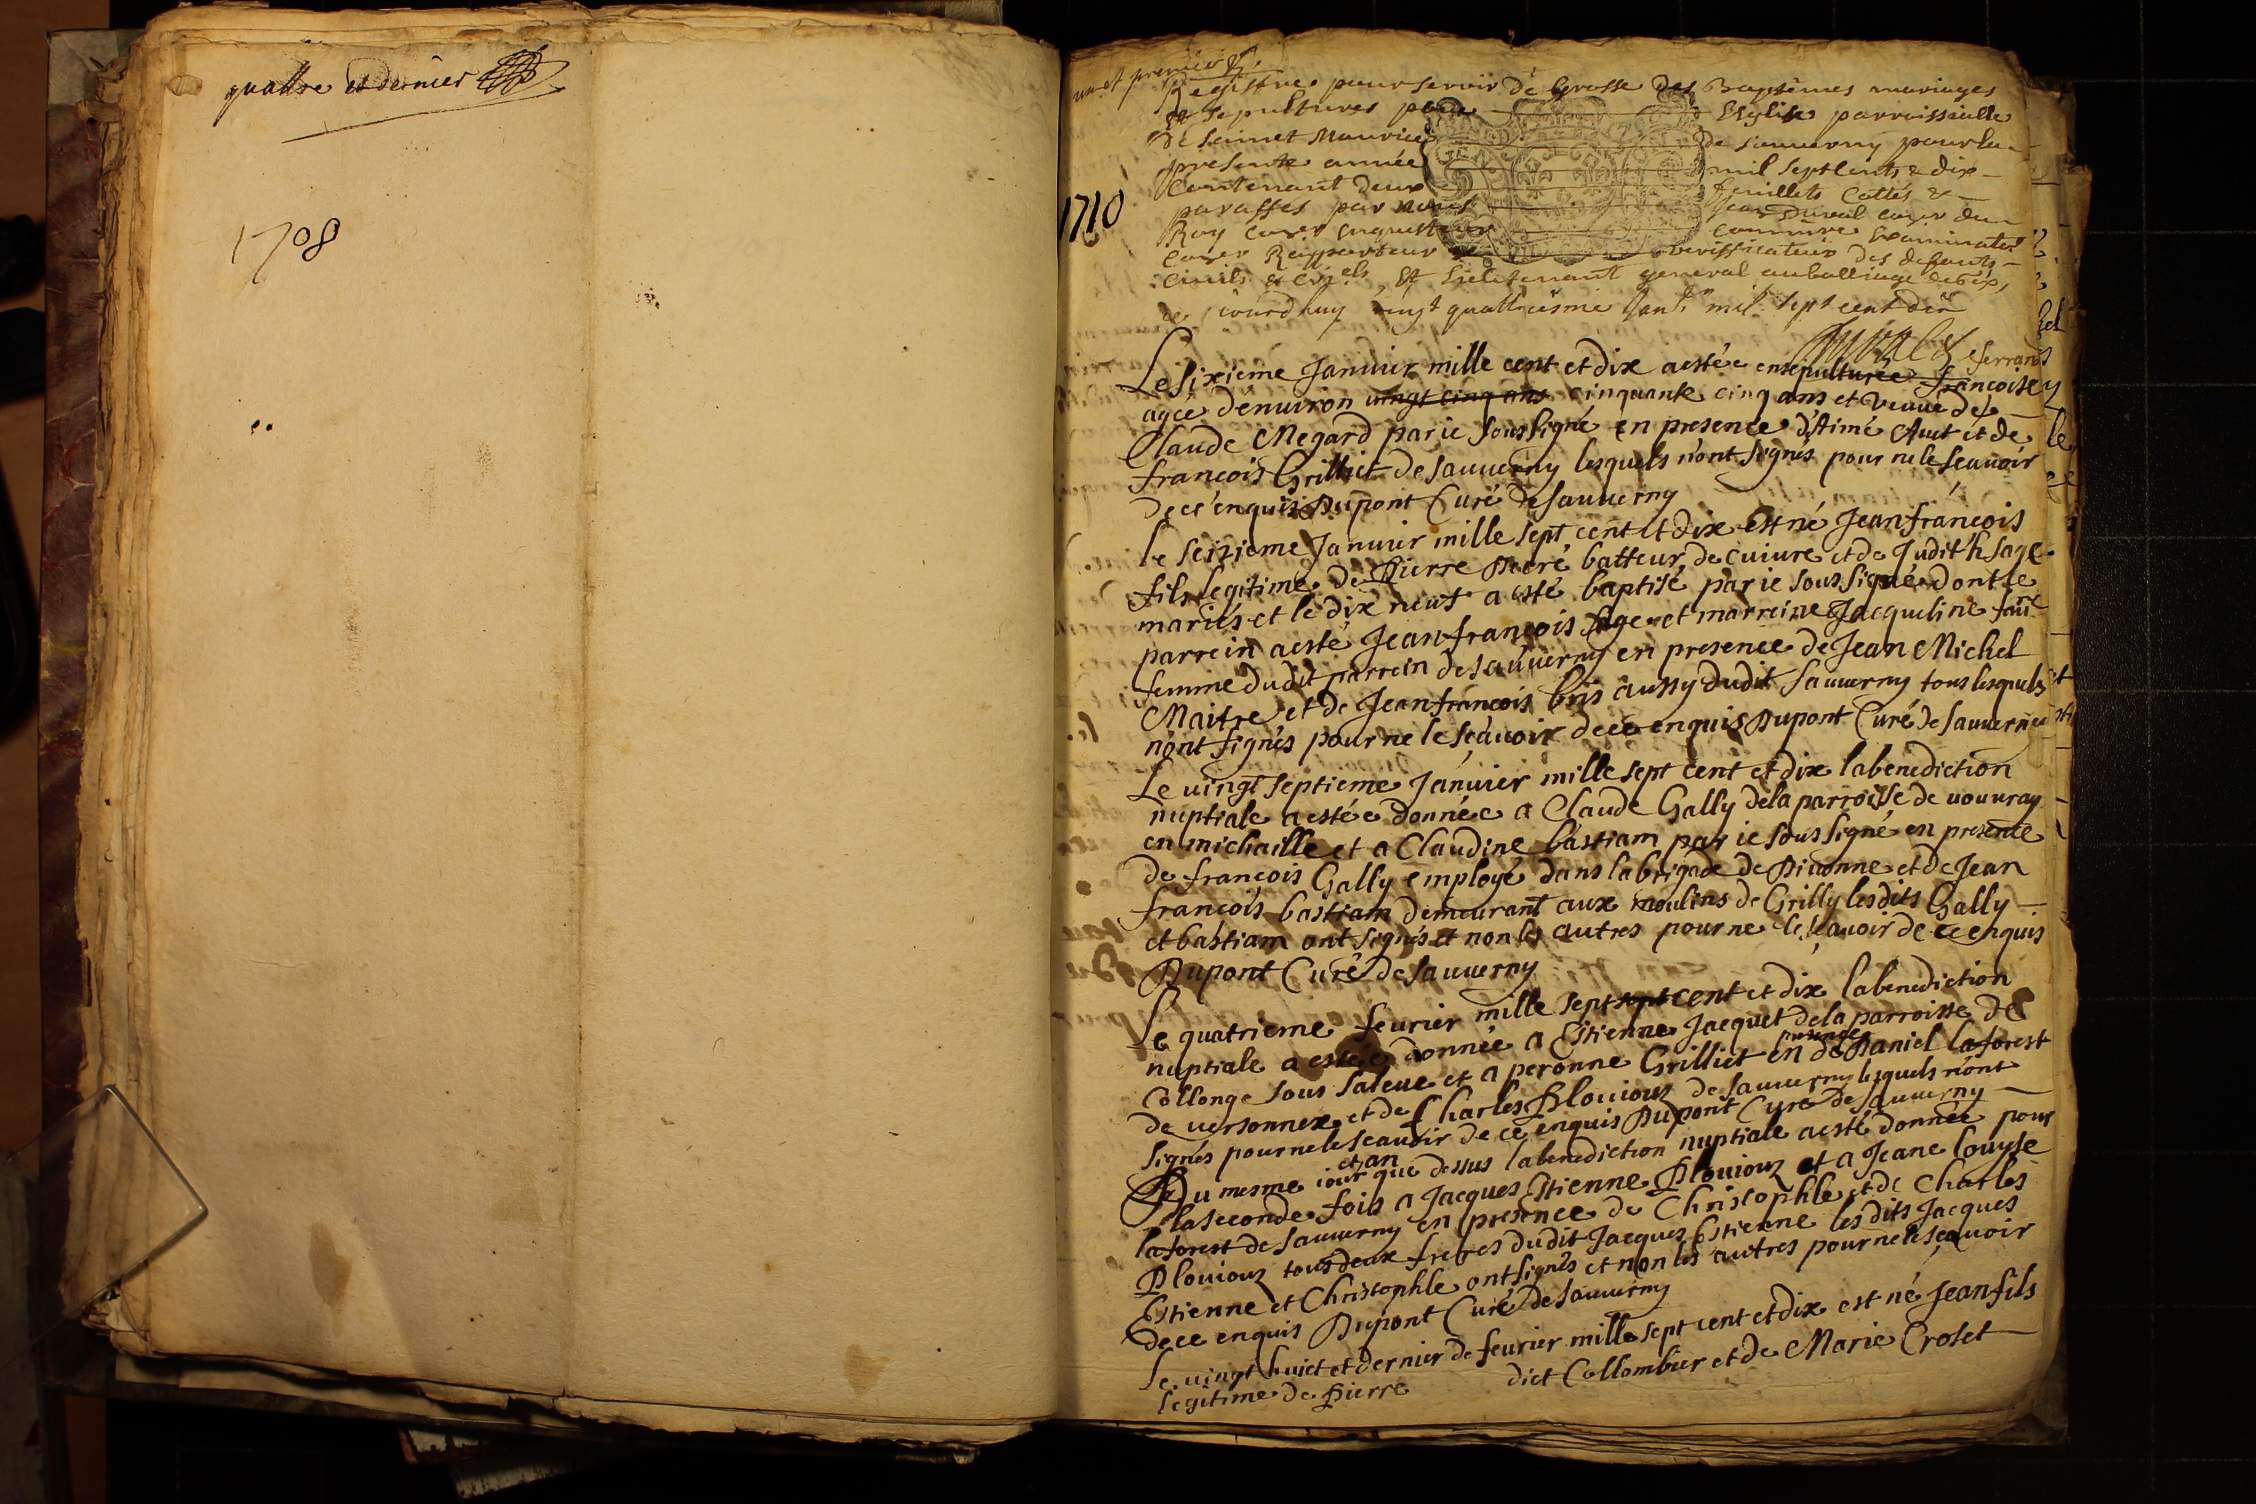 quattre et dernier
1708
un et premier
Registre pour servir de Grosse des Baptêmes mariages
et sepultures pour Eglise parroissialle
De Sainct Maurice de Sauverny pour la
presente année mil sept cents & dix
Contenant deux feuillets Cottés &
paraffés par nous Jean Duval conser du
Roy conser enquesteur commre Examinater
conser Rapporteur verifficateur des deffauts
civils & criels, et Lieutenant general au balliage de Gex,
ce jourdhuy vingt quattriesme Janr mil sept cent dix
1710
Duval
Le sixieme Janvier mille cent et dix a estée ensepulturée françoise ferrand
agée d'environ vingt cinq ans cinquante cinq ans et veuve de
Claude Megard par ie soussigné en presence d'Aimé Aut et de
françois Grilliet de sauverny lesquels n'ont signés pour ne le sçauoir
de ce enquis Dupont Curé de sauuerny
le seizieme Januier mille sept cent et dix est né Jean françois
fils legitime de Pierre Decré batteur de cuiure et de Judith sage
mariés et le dix neuf a esté baptisé par ie soussigné dont le
parrein a esté Jean françois sage et marreine Jacqueline faure
femme dudit parrein de sauuerny en presence de Jean Michel
Maitre et de Jean françois bris aussy dudit sauuerny tous lesquels
n'ont signés pour ne le sçauoir de ce enquis Dupont Curé de sauuerny
Le uingt septieme Januier mille sept cent et dix la benediction
nuptiale a estée donnée a Claude Gally de la parroisse de uouuray
en michaille et a Claudine bastiam par ie soussigné en presence
de françois Gally employé dans la brigade de Diuonne et de Jean
françois bastiam demeurant aux moulins de Grilly lesdits Gally
et bastiam ont signés et non les autres pour ne le sçauoir de ce enquis
Dupont Curé de sauuerny
Le quatrieme feurier mille sept sept cent et dix la benediction
nuptiale a estée donnée a Estienne Jacquet de la parroisse de
Collonge sous saleue et a peronne Grilliet en presence de Daniel laforest
de uersonnex et de Charles Plouiouz de sauuerny lesquels n'ont
signés pour ne le sceauoir de ce enquis Dupont Curé de sauuerny
Du mesme iour et an que dessus la benediction nuptiale a esté donnée pour
la seconde fois a Jacques Estienne Plouiouz et a Jeane louyse
laforest de sauuerny en presence de Christophle et de Charles
Plouiouz tous deux freres dudit Jacques Estienne lesdits Jacques
Estienne et Christophle ont signés et non les autres pour ne le sçauoir
de ce enquis Dupont Curé de sauuerny
Le uingt huict et dernier de feurier mille sept cent et dix est né Jean fils
legitime de Pierre dict Collombier et de Marie Croset